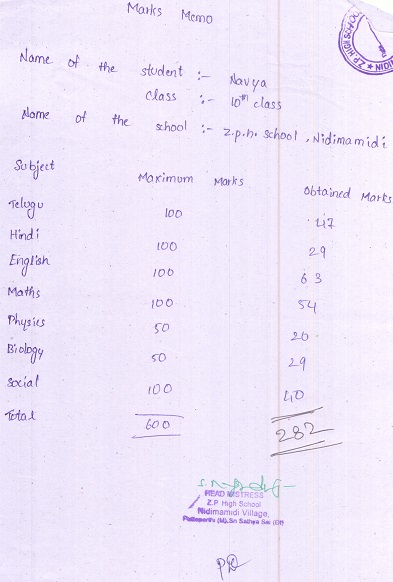 Marks Memo
Z.P. HIGH SCHOOL ★ NIDI
Name of the student :- Navya
class :- 10th class
Name of the school :- z.p.h. school, Nidimamidi
Subject Maximum Marks Obtained Marks
Telugu 100 47
Hindi 100 29
English 100 63
Maths 100 54
Physics 50 20
Biology 50 29
Social 100 40
Total 600 282
HEAD MISTRESS
Z.P High School
Nidimamidi Village,
Puttaparthi (M), Sri Sathya Sai (Dt)